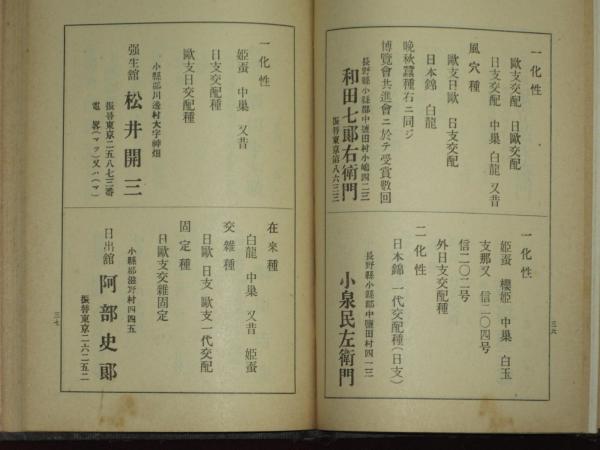 一化性
歐支交配 日歐交配
日支交配 中巢 白龍 又昔
風穴種
歐支日歐 日支交配
日本錦 白龍
晩秋蠶種右ニ同ジ
博覽會共進會ニ於テ受賞數回
長野縣小縣郡中鹽田村小嶋四二三
和田七郞右衞門
振替東京第八六三三
一化性
姫蚕 櫻姫 中巢 白玉
支那又 信二〇四号
信二〇二号
外日支交配種
二化性
日本錦 一代交配種(日支)
長野縣小縣郡中鹽田村四一三
小泉民左衞門
三六
一化性
姫蚕 中巢 又昔
日支交配種
歐支日交配種
小縣郡川邊村大字神畑
强生舘 松井開三
振替東京二五八七三番
電畧(マツ)又ハ(マ)
在來種
白龍 中巢 又昔 姫蚕
交雜種
日歐 日支 歐支一代交配
固定種
日歐支交雜固定
小縣郡滋野村四四五
日出舘 阿部史郞
振替東京二六二五二
三七